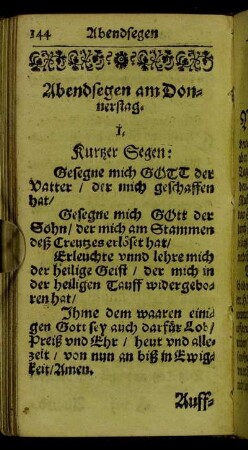 144 Abendsegen
Abendsegen am Don-
nerstag.
1.
Kurtzer Segen:
Gesegne mich GOTT der
Vatter / der mich geschaffen
hat/
Gesegne mich GOtt der
Sohn / der mich am Stammen
deß Creutzes erlöset hat/
Erleuchte vnnd lehre mich
der heilige Geist / der mich in
der heiligen Tauff widergebo-
ren hat/
Ihme dem waaren eini-
gen Gott sey auch darfür Lob/
Preiß vnd Ehr / heut vnd alle-
zeit / von nun an biß in Ewig-
keit/Amen.
Auff-